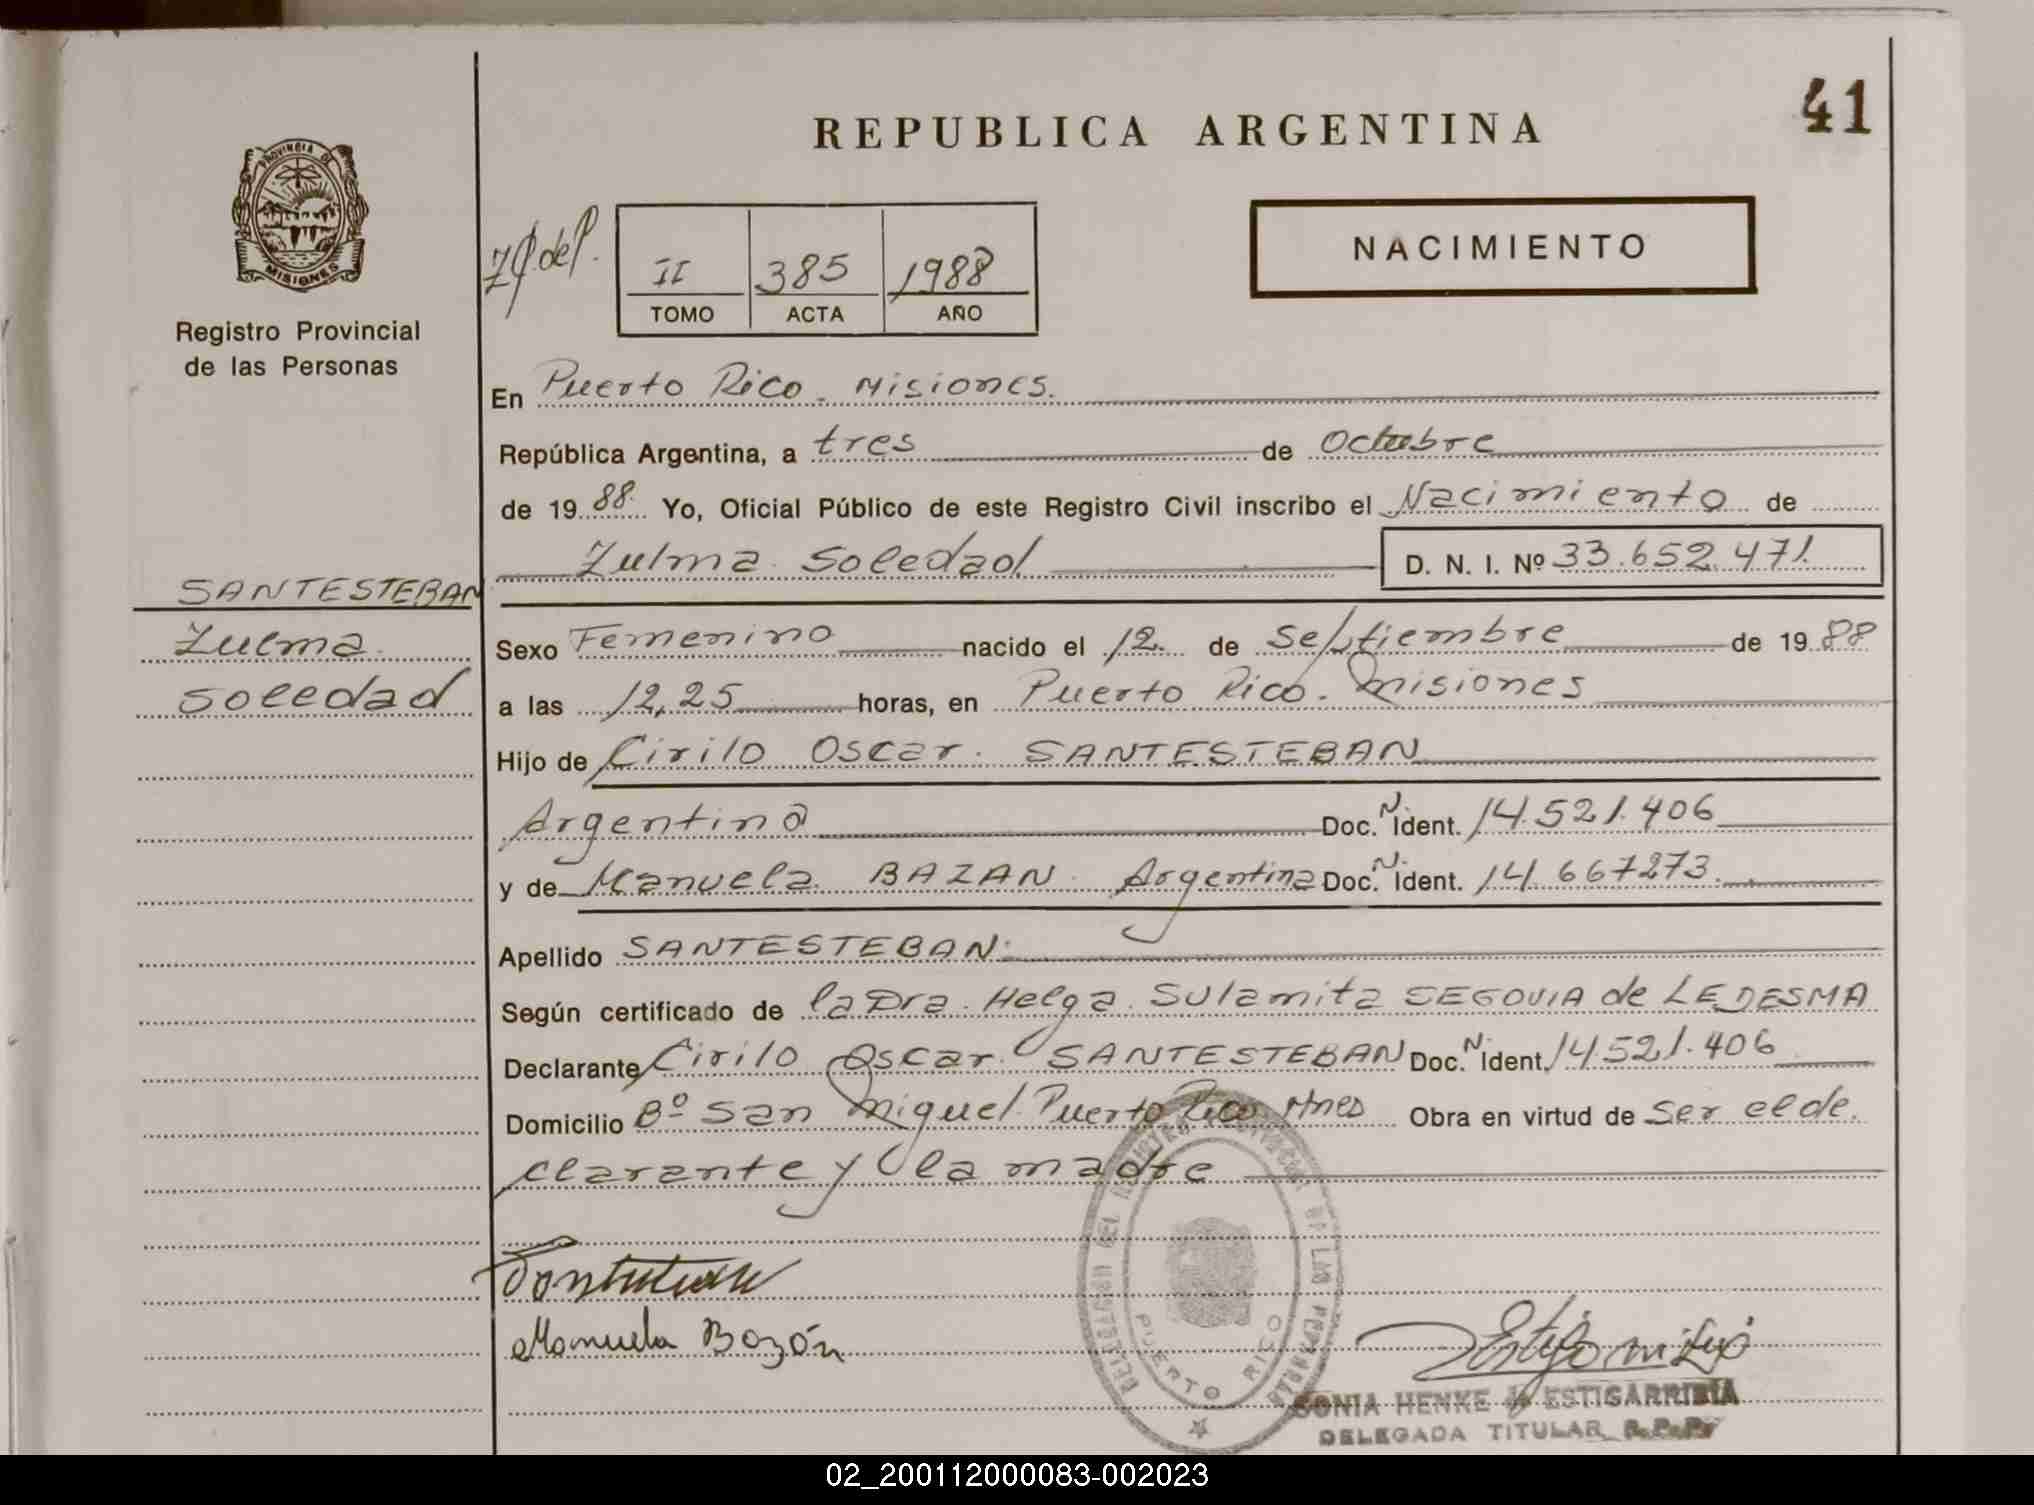 41
REPUBLICA ARGENTINA
PROVINCIA DE
MISIONES
Registro Provincial
de las Personas
II 385 1988
TOMO ACTA AÑO
NACIMIENTO
En Puerto Rico - Misiones.
República Argentina, a tres de Octubre
de 19 88. Yo, Oficial Público de este Registro Civil inscribo el Nacimiento de
Zulma Soledad D. N. I. Nº 33.652.471.
SANTESTEBAN
Zulma
Soledad
Sexo Femenino nacido el 12 de Septiembre de 19 88
a las 12,25 horas, en Puerto Rico - Misiones
Hijo de Cirilo Oscar SANTESTEBAN
Argentino Doc. N. Ident. 14.521.406
y de Manuela BAZAN Argentina Doc. N. Ident. 14.667273.
Apellido SANTESTEBAN.
Según certificado de la Dra. Helga Sulamita SEGOVIA de LEDESMA
Declarante Cirilo Oscar SANTESTEBAN Doc. N. Ident. 14.521.406
Domicilio Bº San Miguel. Puerto Rico Mnes Obra en virtud de ser el de.
clarante y la madre
Manuela Bazán
DELEGACION DEL REGISTRO PROVINCIAL DE LAS PERSONAS
PUERTO RICO
SONIA HENKE de ESTIGARRIBIA
DELEGADA TITULAR R.P.P.
02_200112000083-002023